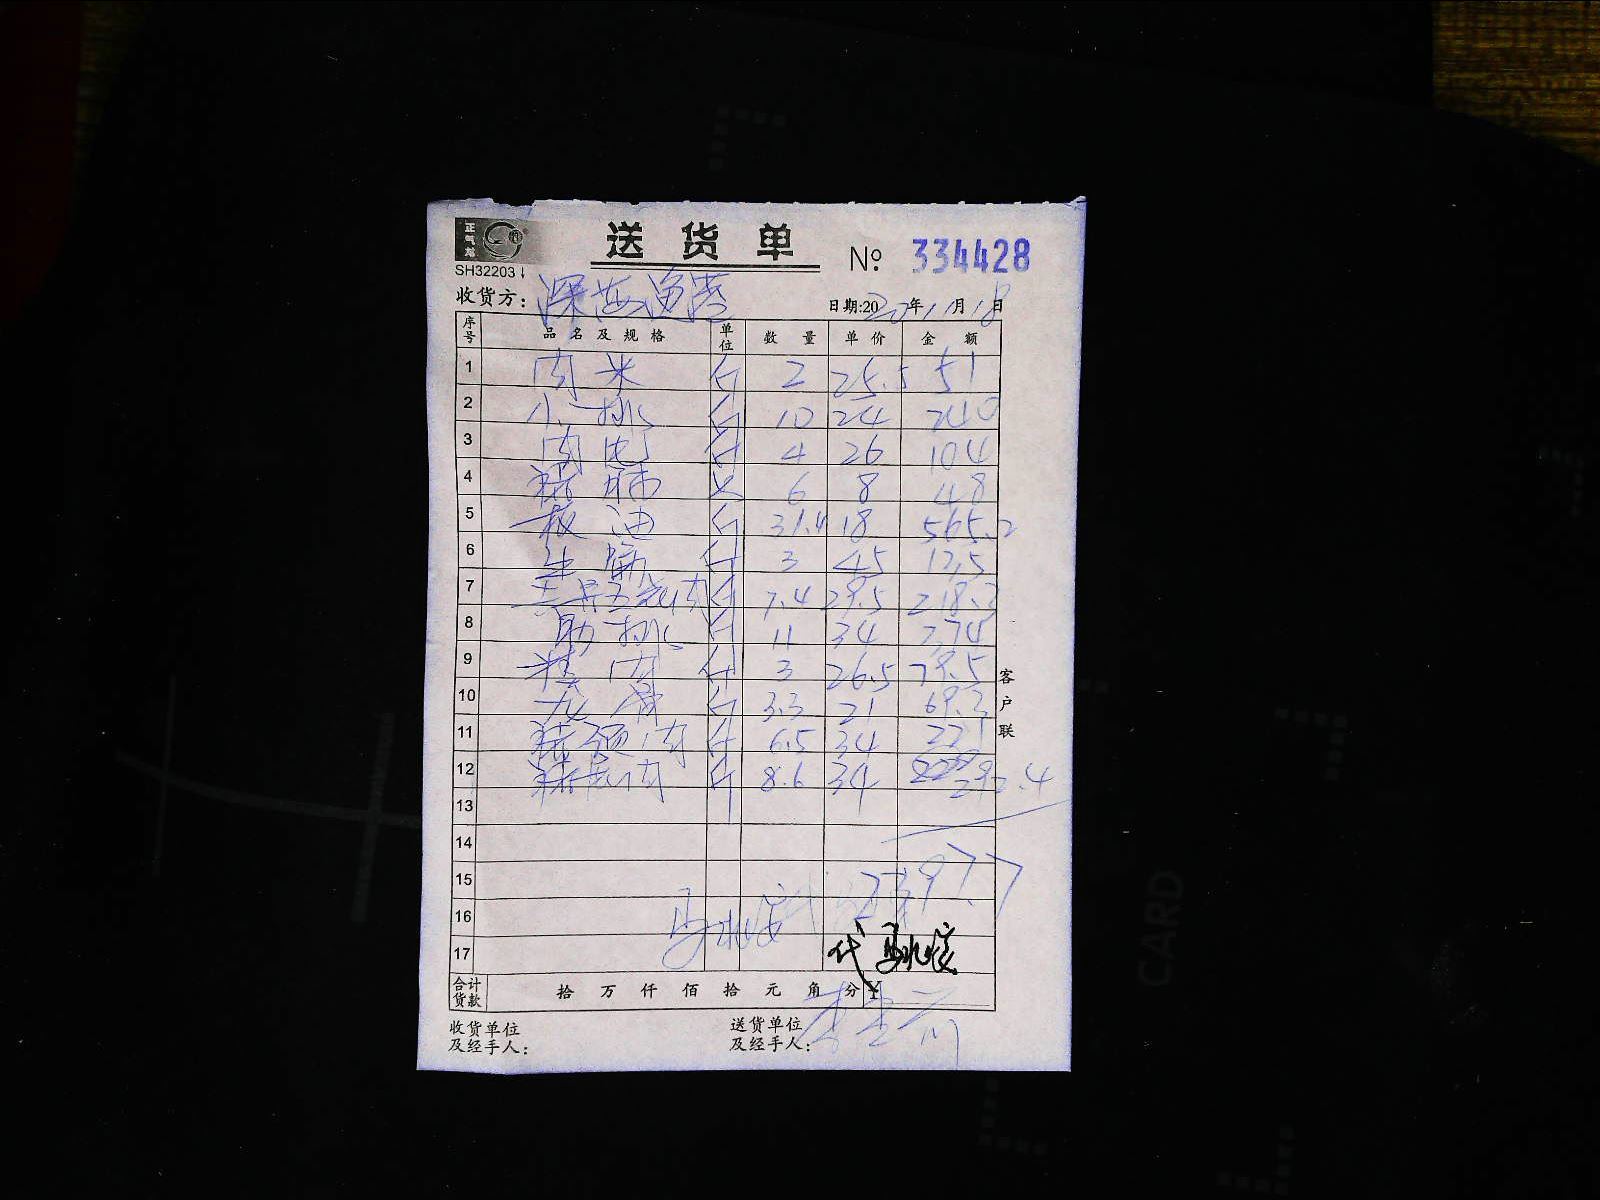 正气龙
送货单
№ 334428
SH32203
收货方: 深海渔港
日期:2020年11月18日
序号 品名及规格 单位 数量 单价 金额
1 肉米 斤 2 25.5 51
2 小排 斤 10 24 240
3 肉 斤 4 26 104
4 猪肺 只 6 8 48
5 板油 斤 31.4 18 565.2
6 斤 3 45 135
7 五花肉 斤 7.4 29.5 218.3
8 肋排 斤 11 34 374
9 精肉 斤 3 26.5 79.5
10 龙骨 斤 3.3 21 69.3
11 猪颈肉 斤 6.5 34 221
12 斤 8.6 34 292.4
13
14
15 2397.7
16
17 代
合计货款 拾 万 仟 佰 拾 元 角 分 ¥
收货单位及经手人:
送货单位及经手人:
客户联
CARD